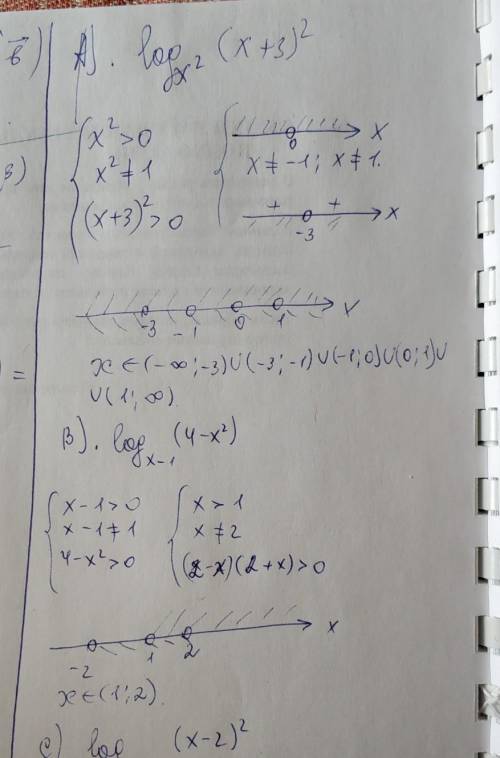 b)
A). log_{x²} (x+3)²
3)
x² > 0
x² ≠ 1
(x+3)² > 0
0 x
x ≠ -1; x ≠ 1.
+ + x
-3
-3 -1 0 1 x
=
x ∈ (-∞; -3) ∪ (-3; -1) ∪ (-1; 0) ∪ (0; 1) ∪
∪ (1; ∞).
B). log_{x-1} (4-x²)
x-1 > 0
x-1 ≠ 1
4-x² > 0
x > 1
x ≠ 2
(2-x)(2+x) > 0
-2 1 2 x
x ∈ (1; 2).
C) log (x-2)²